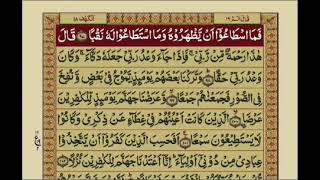 الكهف ١٨ قال الم ١٦
فَمَا اسْطَاعُوْٓا اَنْ يَّظْهَرُوْهُ وَمَا اسْتَطَاعُوْا لَهٗ نَقْبًا ۝ قَالَ
هٰذَا رَحْمَةٌ مِّنْ رَّبِّيْ ۚ فَاِذَا جَآءَ وَعْدُ رَبِّيْ جَعَلَهٗ دَكَّآءَ ۚ وَكَانَ
وَعْدُ رَبِّيْ حَقًّا ۝ وَتَرَكْنَا بَعْضَهُمْ يَوْمَئِذٍ يَّمُوْجُ فِيْ بَعْضٍ وَّنُفِخَ
فِي الصُّوْرِ فَجَمَعْنٰهُمْ جَمْعًا ۝ وَّعَرَضْنَا جَهَنَّمَ يَوْمَئِذٍ لِّلْكٰفِرِيْنَ
عَرْضًا ۝ الَّذِيْنَ كَانَتْ اَعْيُنُهُمْ فِيْ غِطَآءٍ عَنْ ذِكْرِيْ وَكَانُوْا
لَا يَسْتَطِيْعُوْنَ سَمْعًا ۝ اَفَحَسِبَ الَّذِيْنَ كَفَرُوْٓا اَنْ يَّتَّخِذُوْا
عِبَادِيْ مِنْ دُوْنِيْٓ اَوْلِيَآءَ ۚ اِنَّآ اَعْتَدْنَا جَهَنَّمَ لِلْكٰفِرِيْنَ